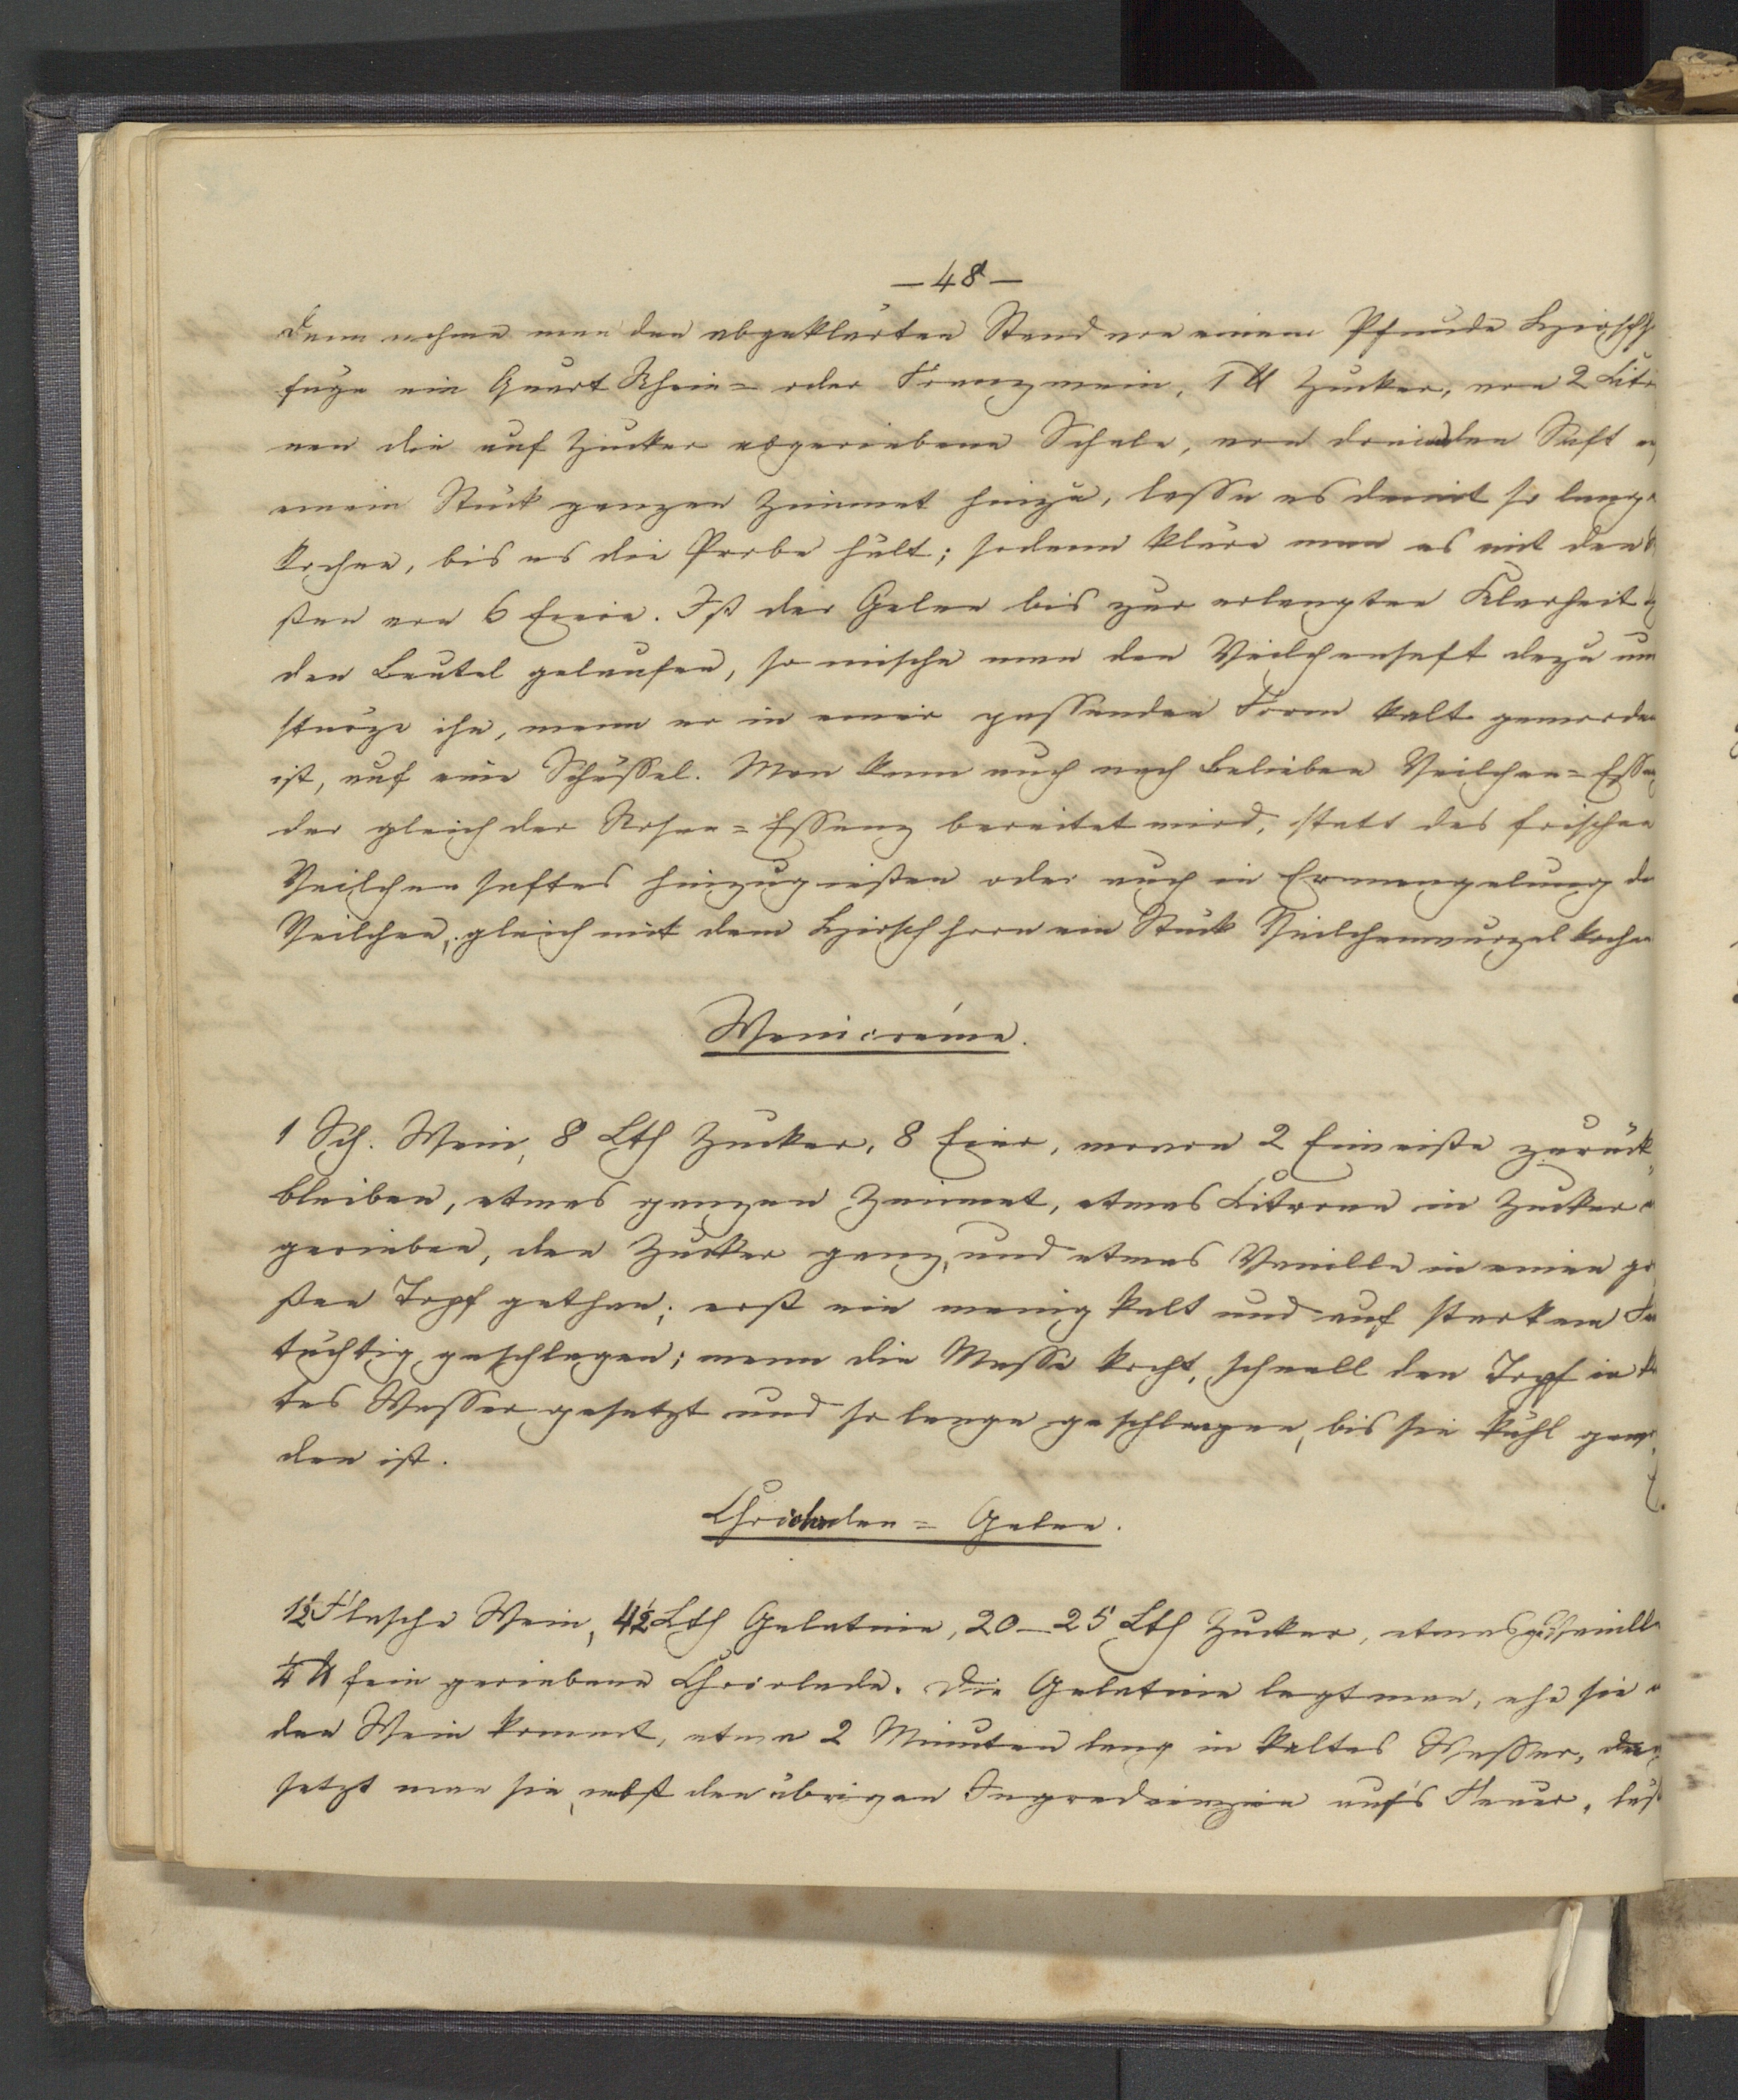 — 48 —
dann nehme man den abgeklärten Stand von einem Pfunde Hirschh
füge ein Quart Rhein= oder Franzwein, 1 ℔ Zucker, von 2 Citro
nen die auf Zucker abgeriebene Schale, von dreien den Saft
einem Stück ganzen Zimmet hinzu, lasse es damit so lange
kochen, bis es die Probe hält; sodann kläre man es mit dem
ßen von 6 Eiern. Ist der Gelee bis zur erlangten Klarheit
den Beutel gelaufen, so mische man den Veilchensaft dazu un
stürze ihn, wenn er in einer passenden Form kalt geworden
ist, auf eine Schüssel. Man kann auch nach Belieben Veilchen=Essen
der gleich der Rosen=Essenz bereitet wird, statt des frischen
Veilchensaftes hinzugießen oder auch in Ermangelung de
Veilchen, gleich mit dem Hirschhorn ein Stück Veilchenwurzel kochen
Weincréme.
1 Sch. Wein, 8 Lth Zucker, 8 Eier, wovon 2 Eiweiße zurück=
bleiben, etwas ganzen Zimmet, etwas Citrone in Zucker
gerieben, den Zucker ganz, und etwas Vanille in einen gr
ßen Topf gethan; erst ein wenig kalt und auf starkem Feu
tüchtig geschlagen; wenn die Masse kocht, schnell den Topf in k
tes Wasser gesetzt und so lange geschlagen, bis sie kühl gewo
den ist.
Chocoladen= Gelee.
1½ Flasche Wein, 4½ Lth Gelatine, 20—25 Lth Zucker, etwas Vanille
¼ ℔ fein geriebene Chocolade. Die Gelatine legt man, ehe sie
den Wein kommt, etwa 2 Minuten lang in kaltes Wasser, dan
setzt man sie, nebst den übrigen Ingredienzien auf's Feuer, läß